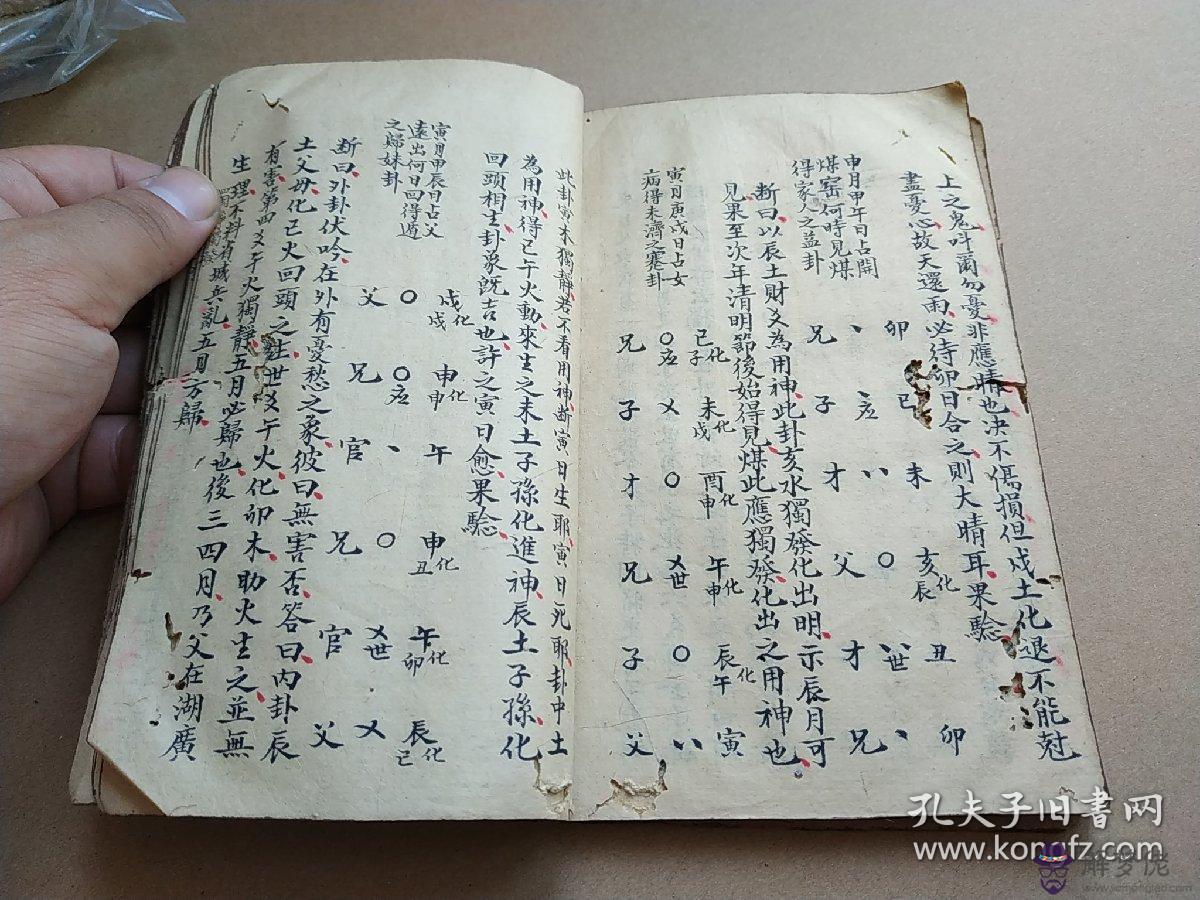 上之鬼呼爾勿憂非應晴也决不傷損但戍土化退不能尅
盡憂心故天還雨必待卯日合之則大晴耳果驗
申月甲午日占開
煤窑何時見煤
得家人之益卦
卯 巳 未 亥化辰 丑 卯
、 、应 〃 〇 〃世 、
兄 子 才 父 才 兄
断曰以辰土財爻為用神此卦亥水獨發化出明示辰月可
見果至次年清明節後始得見煤此應獨發化出之用神也
寅月庚戍日占女
病得未濟之蹇卦
巳化子 未化戍 酉化申 午化申 辰化午 寅
〇应 乂 〇 乂世 〇 〃
兄 子 才 兄 子 父
此卦寅木獨静若不看用神断寅日生耶寅日死耶卦中土
為用神得巳午火動來生之未土子孫化進神辰土子孫化
回頭相生卦象既吉也許之寅日愈果驗
寅月甲辰日占父
遠出何日回得遁
之歸妹卦
戍化戍 申化申 午 申化丑 午化卯 辰化巳
〇 〇应 、 〇 乂世 乂
父 兄 官 兄 官 父
断曰外卦伏吟在外有憂愁之象彼曰無害否答曰内卦辰
土父母化巳火回頭之生世爻午火化卯木助火生之並無
有害第四爻午火獨静五月必歸也後三四月乃父在湖廣
生理不料有城兵亂五月方歸
孔夫子旧书网
www.kongfz.com
解梦佬